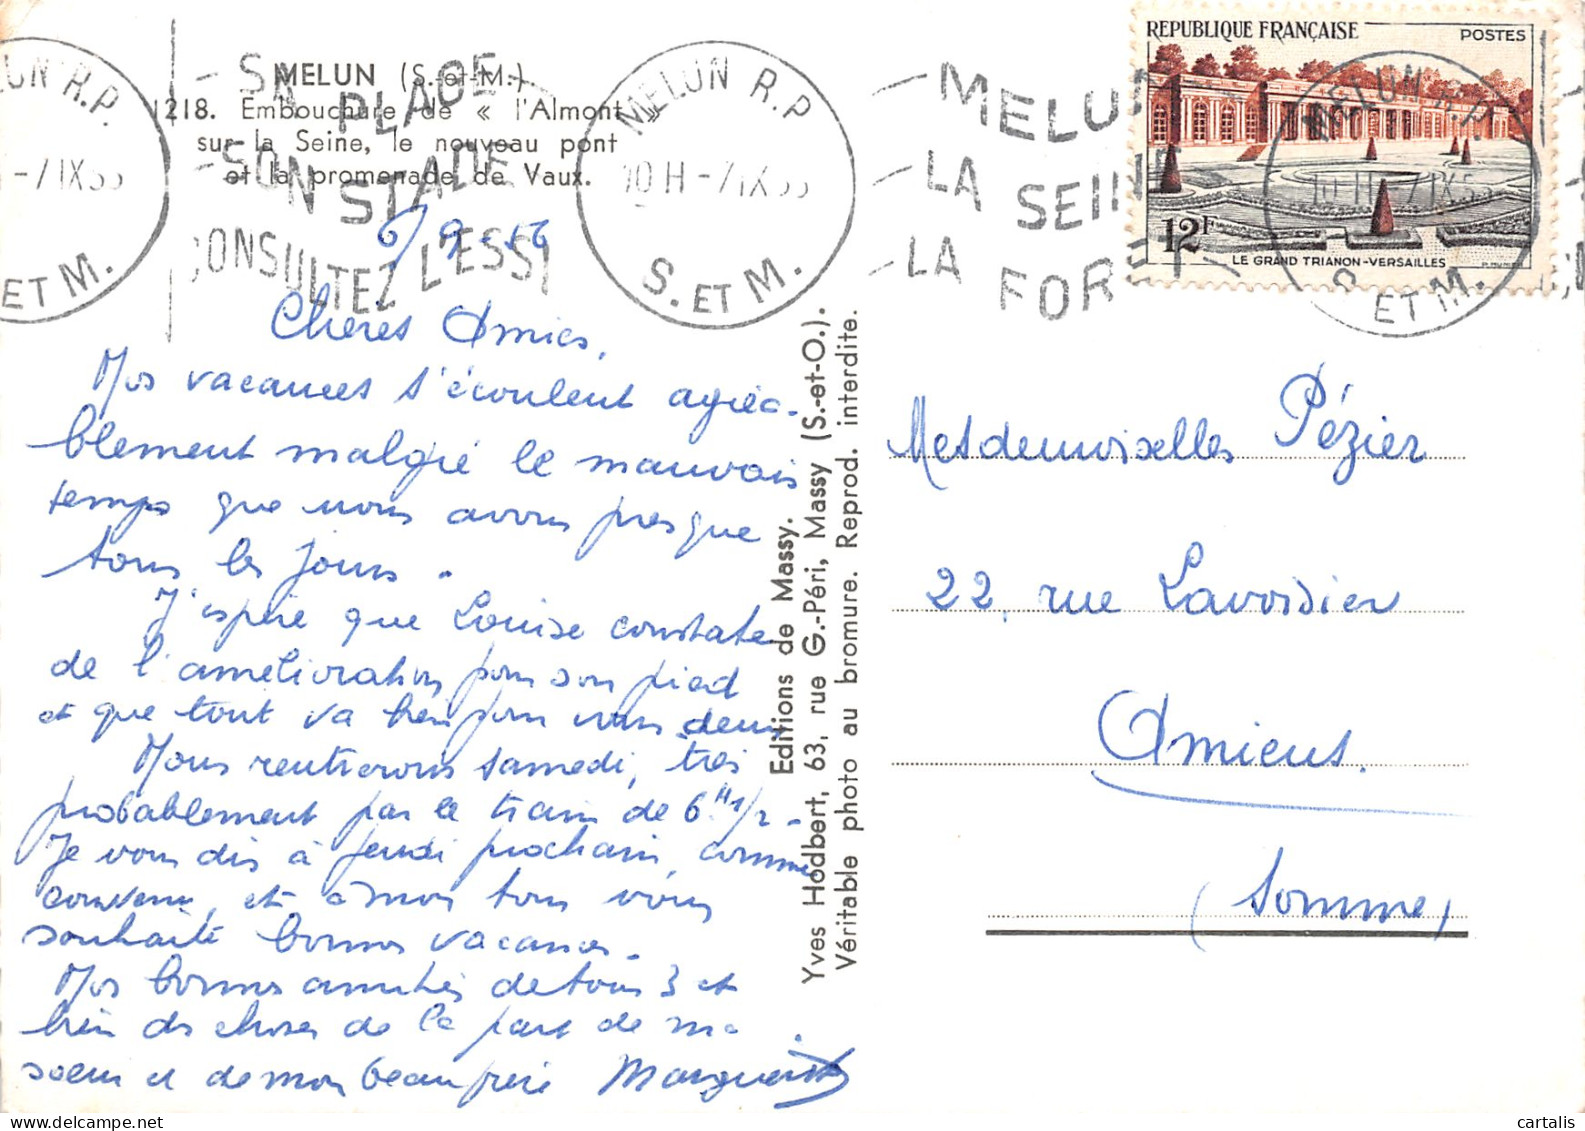 MELUN (S.-et-M.).
1218. Embouchure de « l'Almont »
sur la Seine, le nouveau pont
et la promenade de Vaux.
SA PLAGE
SON STADE
CONSULTEZ L'ESSI
MELUN R.P.
10H-7 IX 55
S. ET M.
MELUN
LA SEINE
LA FORET
REPUBLIQUE FRANÇAISE
POSTES
12F
LE GRAND TRIANON-VERSAILLES
MELUN R.P.
10 H -7 IX 55
S. ET M.
6/9-56
Chères Amies,
Nos vacances s'écoulent agréa-
blement malgré le mauvais
temps que nous avons presque
tous les jours.
J'espère que Louise constate
de l'amélioration pour son pied
et que tout va bien pour vous deux
Nous rentrerons samedi, très
probablement par le train de 6H 1/2 -
Je vous dis à jeudi prochain, comme
convenu, et à mon tour vous
souhaite bonnes vacances.
Nos bonnes amitiés de tous 3 et
bien des choses de la part de ma
soeur et de mon beau frère Marguerite
Editions de Massy.
Yves Hodbert, 63, rue G.-Péri, Massy (S.-et-O.).
Véritable photo au bromure. Reprod. interdite.
Mesdemoiselles Pézier
22, rue Lavoisier
Amiens.
(Somme)
cartalis